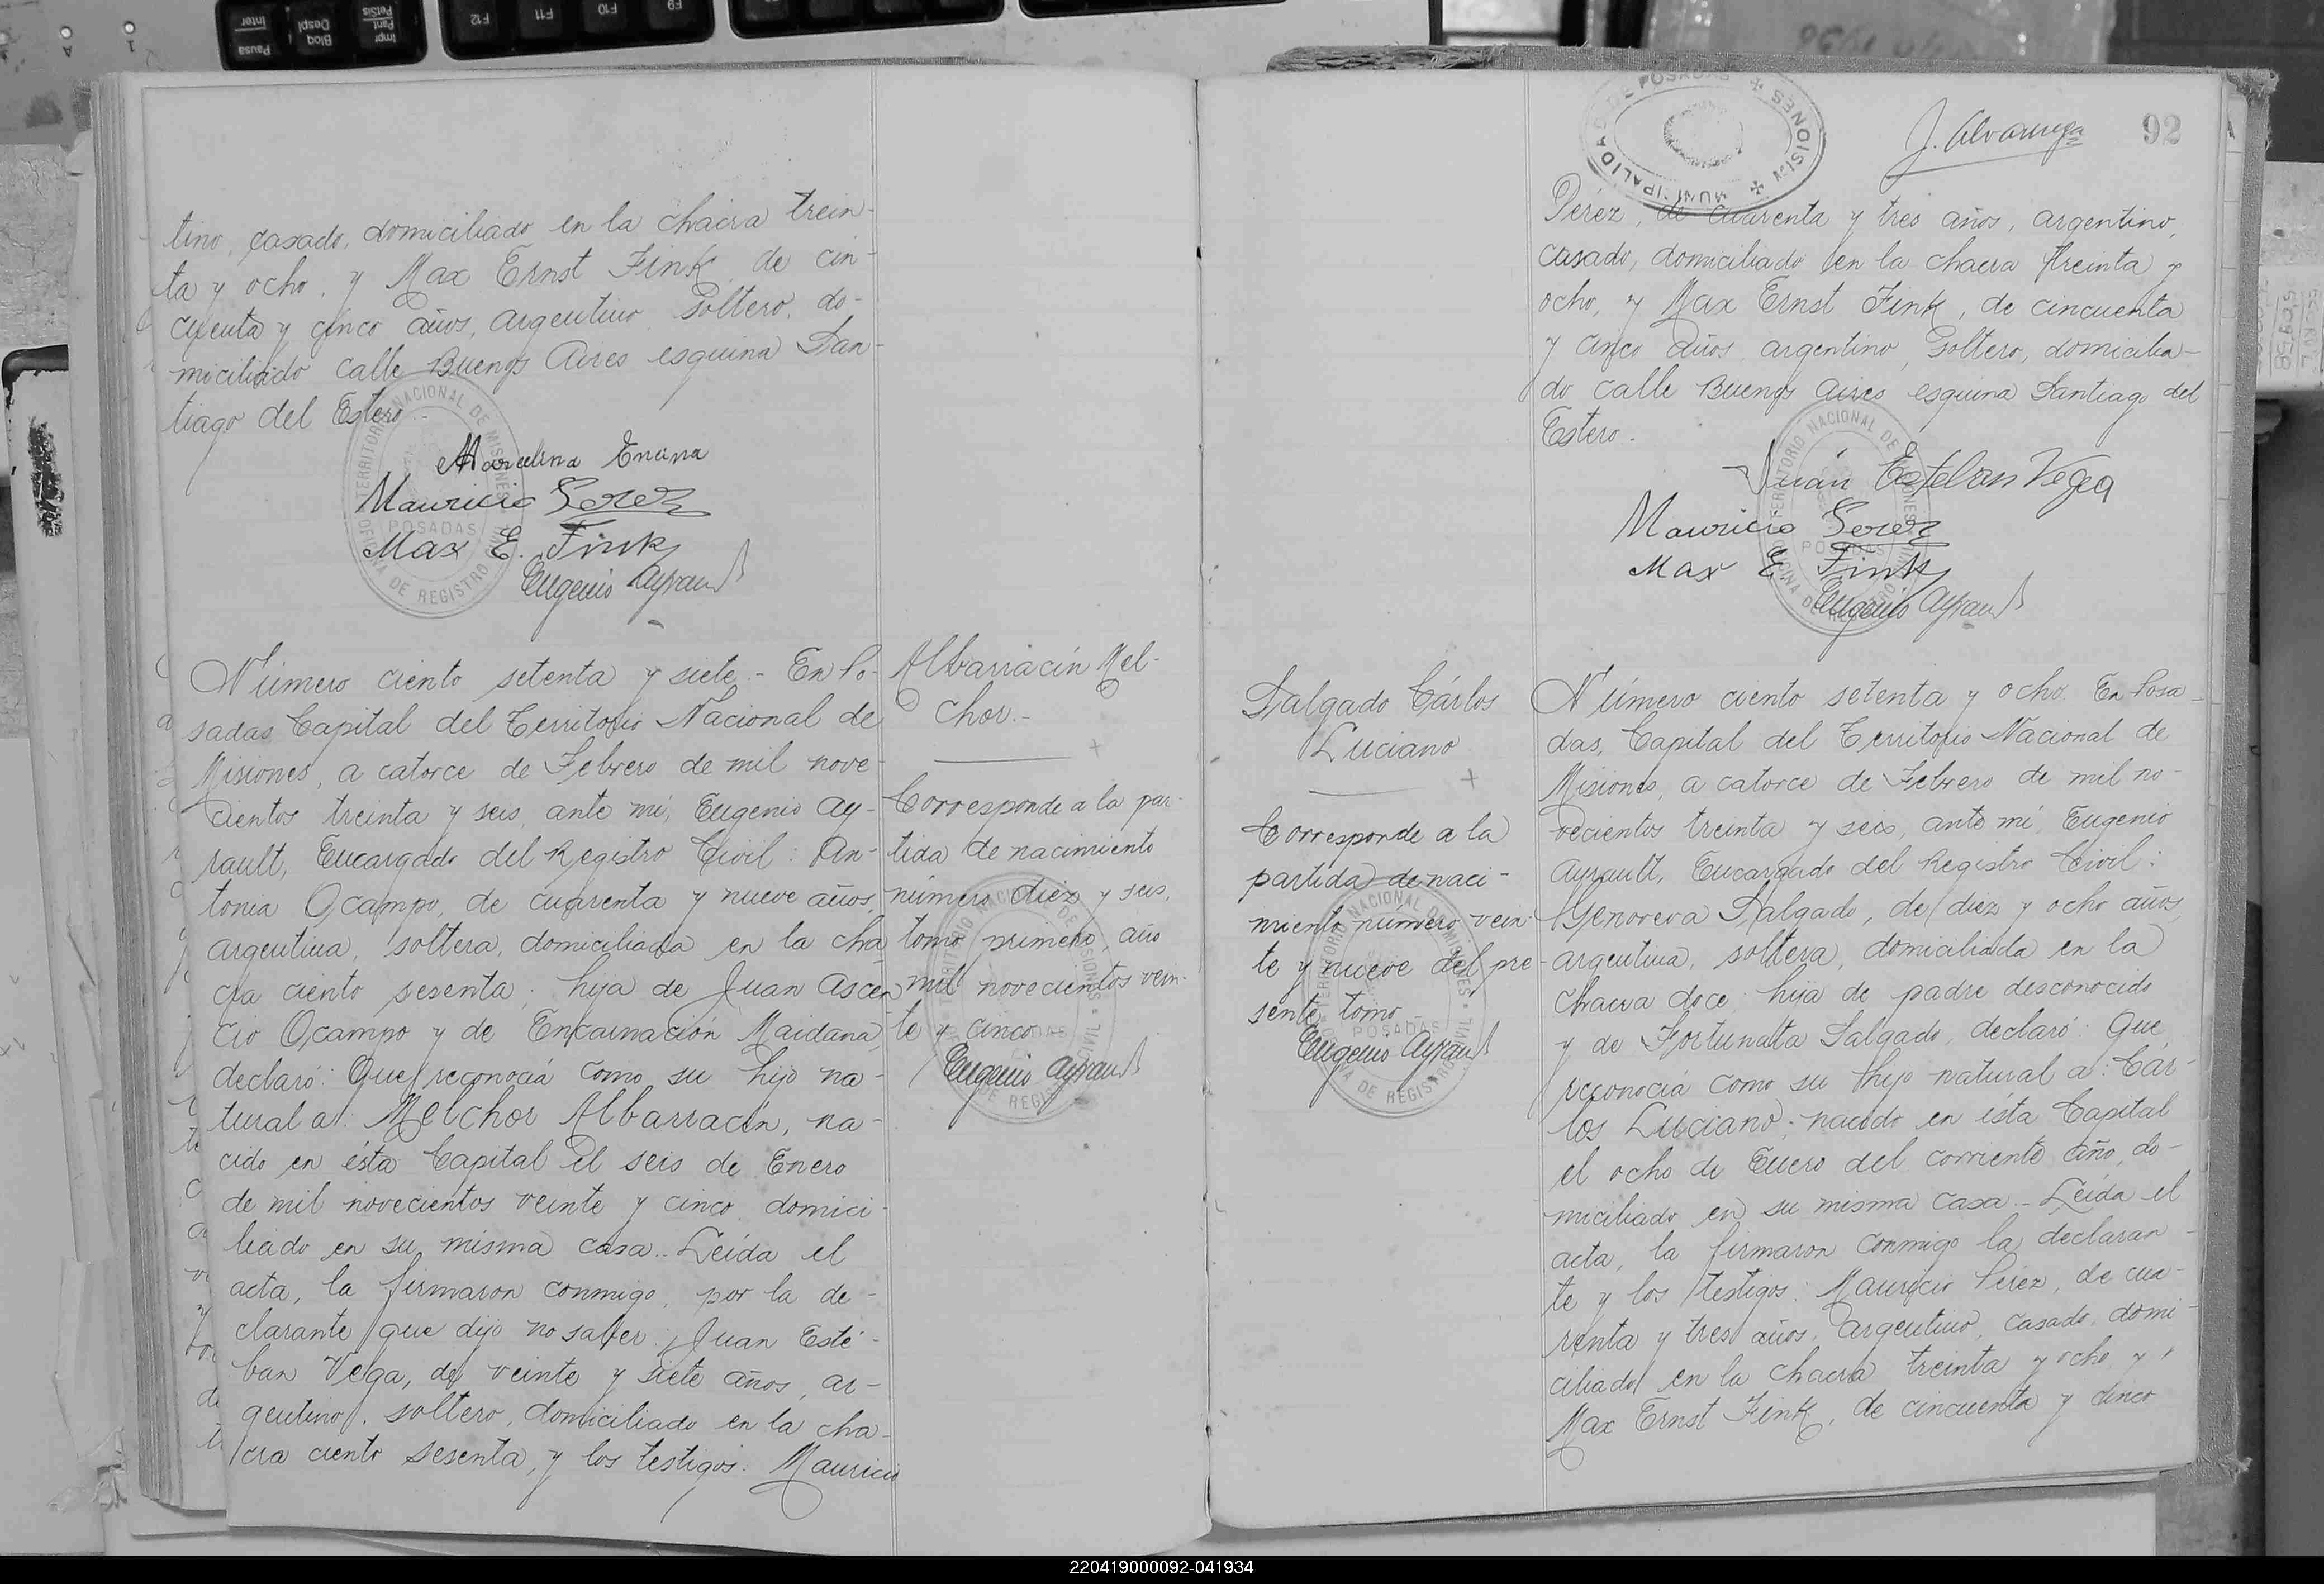 tino, casado, domiciliado en la chacra trein-
ta y ocho, y Max Ernst Fink, de cin-
cuenta y cinco años, argentino, soltero, do-
miciliado calle Buenos Aires esquina San-
tiago del Estero.-
Marcelina Encina
Mauricio Perez
Max E. Fink
Eugenio Ayrault
Número ciento setenta y siete.- En Po-
sadas Capital del Territorio Nacional de
Misiones, a catorce de Febrero de mil nove-
cientos treinta y seis, ante mí, Eugenio Ay-
rault, Encargado del Registro Civil: An-
tonia Ocampo, de cuarenta y nueve años,
argentina, soltera, domiciliada en la cha-
cra ciento sesenta; hija de Juan Ascen-
cio Ocampo y de Encarnación Maidana,
declaró: Que reconocía como su hijo na-
tural a: Melchor Albarracín, na-
cido en ésta Capital el seis de Enero
de mil novecientos veinte y cinco, domici-
liado en su misma casa.- Leída el
acta, la firmaron conmigo, por la de-
clarante que dijo no saber, Juan Esté-
ban Vega, de veinte y siete años, ar-
gentino, soltero, domiciliado en la cha-
cra ciento sesenta, y los testigos: Mauricio
Albarracín Mel-
chor.-
Corresponde a la par-
tida de nacimiento
número diez y seis,
tomo primero, año
mil novecientos vein-
te y cinco.-
Eugenio Ayrault
J. Alvarenga
92
MUNICIPALIDAD DE POSADAS
MISIONES
Pérez, de cuarenta y tres años, argentino,
casado, domiciliado en la chacra treinta y
ocho, y Max Ernst Fink, de cincuenta
y cinco años, argentino, soltero, domicilia-
do calle Buenos Aires esquina Santiago del
Estero.-
Juán Esteban Vega
Mauricio Perez
Max E. Fink
Eugenio Ayrault
Salgado Cárlos
Luciano
Corresponde a la
partida de naci-
miento número vein-
te y nueve del pre-
sente tomo.-
Eugenio Ayrault
Número ciento setenta y ocho. En Posa-
das, Capital del Territorio Nacional de
Misiones, a catorce de Febrero de mil no-
vecientos treinta y seis, ante mí, Eugenio
Ayrault, Encargado del Registro Civil:
Genoveva Salgado, de diez y ocho años,
argentina, soltera, domiciliada en la
chacra doce; hija de padre desconocido
y de Fortunata Salgado, declaró: Que
reconocía como su hijo natural a: Cár-
los Luciano; nacido en ésta Capital
el ocho de Enero del corriente año, do-
miciliado en su misma casa.- Leída el
acta, la firmaron conmigo la declaran-
te y los testigos: Mauricio Pérez, de cua-
renta y tres años, argentino, casado, domi-
ciliado en la chacra treinta y ocho, y
Max Ernst Fink, de cincuenta y cinco
220419000092-041934